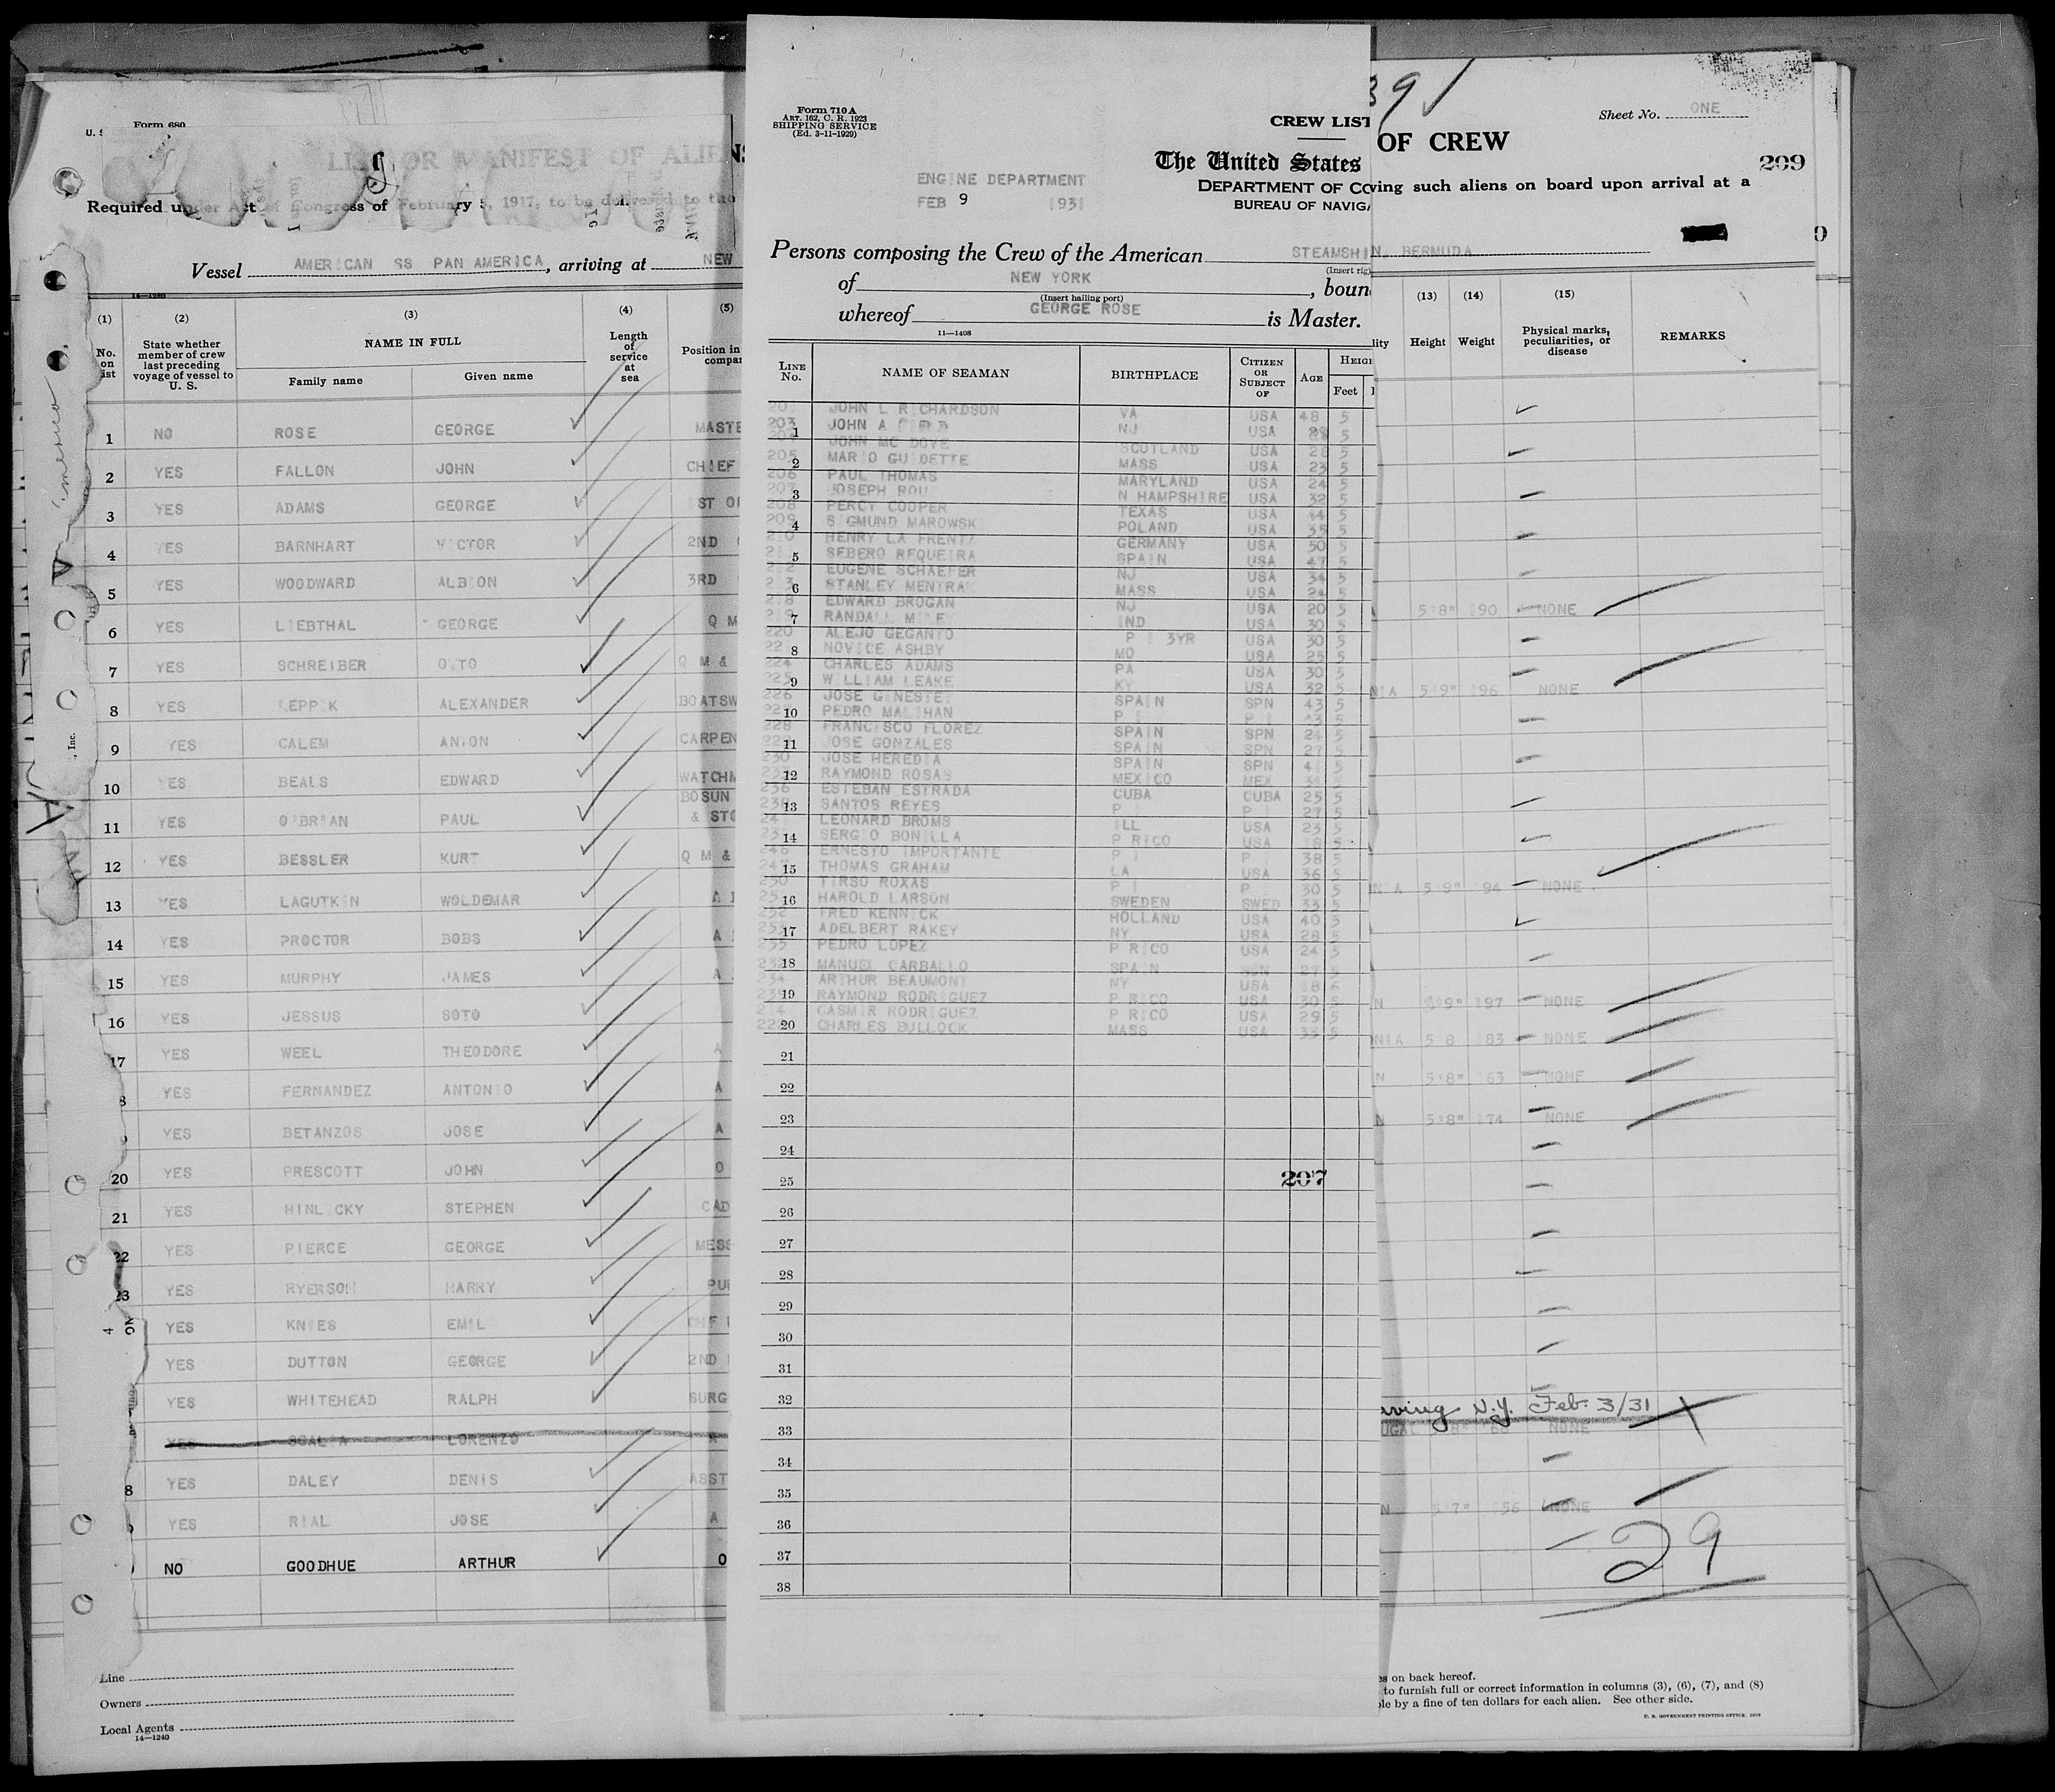 Form 680
U. S
LIST OR MANIFEST OF ALIENS
Required under Act of Congress of February 5, 1917, to be delivered to the
Vessel AMERICAN SS PAN AMERICA, arriving at NEW
14—1240
(1) (2) (3) (4) (5)
No. on list
State whether member of crew last preceding voyage of vessel to U. S.
NAME IN FULL
Family name Given name
Length of service at sea
Position in compa
1 NO ROSE GEORGE MASTE
2 YES FALLON JOHN CHIEF
3 YES ADAMS GEORGE ST O
4 YES BARNHART VICTOR 2ND
5 YES WOODWARD ALBION 3RD
6 YES LIEBTHAL GEORGE Q M
7 YES SCHREIBER OTTO Q M &
8 YES LEPPIK ALEXANDER BOATSW
9 YES CALEM ANTON CARPEN
10 YES BEALS EDWARD WATCHM
BOSUN
11 YES O'BRIAN PAUL & STO
12 YES BESSLER KURT Q M &
13 YES LAGUTKIN WOLDEMAR A
14 YES PROCTOR BOBS A
15 YES MURPHY JAMES A
16 YES JESSUS SOTO
17 YES WEEL THEODORE A
8 YES FERNANDEZ ANTONIO A
YES BETANZOS JOSE A
20 YES PRESCOTT JOHN O
21 YES HINLICKY STEPHEN CAD
22 YES PIERCE GEORGE MESS
23 YES RYERSON HARRY PU
4 YES KNIES EMIL
YES DUTTON GEORGE 2ND
YES WHITEHEAD RALPH SURG
YES SCALIA LORENZO A
8 YES DALEY DENIS ASST
YES RIAL JOSE A
NO GOODHUE ARTHUR O
Line
Owners
Local Agents
14—1240
, Inc.
Form 710 A
ART. 162, C. R. 1923
SHIPPING SERVICE
(Ed. 3-11-1929)
CREW LIST
The United States
ENGINE DEPARTMENT
FEB 9 1931
DEPARTMENT OF CO
BUREAU OF NAVIGA
Persons composing the Crew of the American STEAMSHI
(Insert rig)
of NEW YORK, boun
(Insert hailing port)
whereof GEORGE ROSE is Master.
11—1408
LINE No. NAME OF SEAMAN BIRTHPLACE CITIZEN OR SUBJECT OF AGE HEIG
Feet
JOHN L RICHARDSON VA USA 48 5
203 1 JOHN A NJ USA 5
JOHN MC DOVE SCOTLAND USA 28 5
205 2 MARIO GUIDETTE MASS USA 23 5
206 PAUL THOMAS MARYLAND USA 24 5
3 JOSEPH ROU N HAMPSHIRE USA 32 5
208 PERCY COOPER TEXAS USA 44 5
209 4 SIGMUND MAROWSK POLAND USA 35 5
HENRY LA FRENTZ GERMANY USA 50 5
5 SEBERO REQUEIRA SPAIN USA 47 5
EUGENE SCHAEFER NJ USA 34 5
6 STANLEY MENTRAK MASS USA 5
EDWARD BROGAN NJ USA 20 5
7 RANDALL IND USA 30 5
220 ALEJO GEGANTO P I 3YR USA 30 5
8 NOVICE ASHBY MO USA 25 5
224 CHARLES ADAMS PA USA 30 5
225 9 WILLIAM LEAKE KY USA 32 5
226 JOSE GINESTEI SPAIN SPN 43 5
10 PEDRO MALIHAN P I P I 43 5
228 FRANCISCO FLOREZ SPAIN SPN 24 5
229 11 JOSE GONZALES SPAIN SPN 27 5
230 JOSE HEREDIA SPAIN SPN 41 5
12 RAYMOND ROSAS MEXICO MEX 5
236 ESTEBAN ESTRADA CUBA CUBA 25 5
13 SANTOS REYES P P 27 5
LEONARD BROMS ILL USA 23 5
14 SERGIO BONILLA P RICO USA 5
246 ERNESTO IMPORTANTE P I P 38 5
247 15 THOMAS GRAHAM LA USA 36 5
250 TIRSO ROXAS P I P 30 5
16 HAROLD LARSON SWEDEN SWED 33 5
252 FRED KENNICK HOLLAND USA 40 5
17 ADELBERT RAKEY NY USA 28 5
255 PEDRO LOPEZ P RICO USA 24 5
18 MANUEL CARBALLO SPAIN 27 5
234 ARTHUR BEAUMONT NY USA
19 RAYMOND RODRIGUEZ P RICO USA 30 5
CASMIR RODRIGUEZ P RICO USA 29 5
20 CHARLES BULLOCK MASS USA 35 5
21
22
23
24
25 207
26
27
28
29
30
31
32
33
34
35
36
37
38
Sheet No. ONE
OF CREW
209
ving such aliens on board upon arrival at a
N. BERMUDA
(13) (14) (15)
lity Height Weight Physical marks, peculiarities, or disease REMARKS
5'8" 190 NONE
NIA 5'9" 196 NONE
NIA 5'9" 194 NONE
N 5'9" 197 NONE
NIA 5'8 183 NONE
N 5'8" 163 NONE
N 5'8" 174 NONE
ving N.Y. Feb. 3/31
UGAL NONE
N 5'7" 156 NONE
29
es on back hereof.
to furnish full or correct information in columns (3), (6), (7), and (8)
le by a fine of ten dollars for each alien. See other side.
U. S. GOVERNMENT PRINTING OFFICE